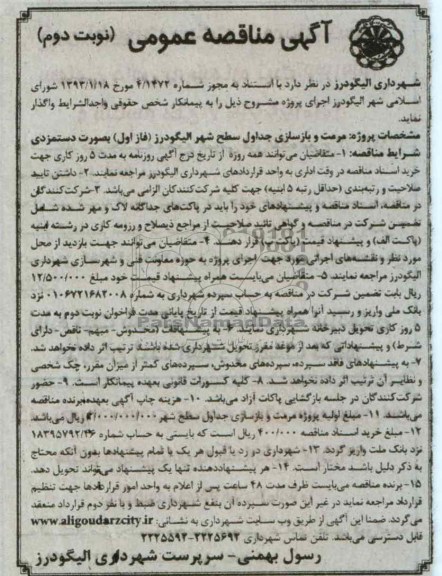 آگهی مناقصه عمومی (نوبت دوم)
شهرداری الیگودرز در نظر دارد با استناد به مجوز شماره ۴/۱۴۷۲ مورخ ۱۳۹۳/۱/۱۸ شورای
اسلامی شهر الیگودرز اجرای پروژه مشروح ذیل را به پیمانکار شخص حقوقی واجدالشرایط واگذار
نماید.
مشخصات پروژه: مرمت و بازسازی جداول سطح شهر الیگودرز (فاز اول) بصورت دستمزدی
شرایط مناقصه: ۱- متقاضیان می‌توانند همه روزه از تاریخ درج آگهی روزنامه به مدت ۵ روز کاری جهت
خرید اسناد مناقصه در وقت اداری به واحد قراردادهای شهرداری الیگودرز مراجعه نمایند. ۲- داشتن تایید
صلاحیت و رتبه‌بندی (حداقل رتبه ۵ ابنیه) جهت کلیه شرکت‌کنندگان الزامی می‌باشد. ۳- شرکت‌کنندگان
در مناقصه، اسناد مناقصه و پیشنهادهای خود را باید در پاکت‌های جداگانه لاک و مهر شده شامل
تضمین شرکت در مناقصه و گواهی تائید صلاحیت از مراجع ذیصلاح و رزومه کاری در رشته ابنیه
(پاکت الف) و پیشنهاد قیمت (پاکت ب) قرار دهند. ۴- متقاضیان می‌توانند جهت بازدید از محل
مورد نظر و نقشه‌های اجرائی مورد جهت اجرای پروژه به حوزه معاونت فنی و شهرسازی شهرداری
الیگودرز مراجعه نمایند. ۵- متقاضیان می‌بایست همراه پیشنهاد قیمت خود مبلغ ۱۲/۵۰۰/۰۰۰
ریال بابت تضمین شرکت در مناقصه به حساب سپرده شهرداری به شماره ۰۱۰۶۷۲۱۶۸۲۰۰۸ نزد
بانک ملی واریز و رسید آنرا همراه پیشنهاد قیمت از تاریخ پایانی مدت فراخوان نوبت دوم به مدت
۵ روز کاری تحویل دبیرخانه شهرداری نمایند. ۶- به پیشنهادات (مخدوش- مبهم- ناقص- دارای
شرط) و پیشنهاداتی که بعد از موعد مقرر تحویل شهرداری شده باشد ترتیب اثر داده نخواهد شد.
۷- به پیشنهادهای فاقد سپرده، سپرده‌های مخدوش، سپرده‌های کمتر از میزان مقرر، چک شخصی
و نظایر آن ترتیب اثر داده نخواهد شد. ۸- کلیه کسورات قانونی بعهده پیمانکار است. ۹- حضور
شرکت‌کنندگان در جلسه بازگشایی پاکات آزاد می‌باشد. ۱۰- هزینه چاپ آگهی بعهده برنده مناقصه
می‌باشد. ۱۱- مبلغ اولیه پروژه مرمت و بازسازی جداول سطح شهر ۰۰۰/۰۰۰/۰۰۰ ریال می‌باشد.
۱۲- مبلغ خرید اسناد مناقصه ۴۰۰/۰۰۰ ریال است که بایستی به حساب شماره ۱۸۳۹۵۷۹۲/۴۶
نزد بانک ملت واریز گردد. ۱۳- شهرداری در رد یا قبول هر یک یا تمام پیشنهادها بدون آنکه محتاج
به ذکر دلیل باشد مختار است. ۱۴- هر پیشنهاددهنده تنها یک پیشنهاد می‌تواند تحویل دهد.
۱۵- برنده مناقصه می‌بایست ظرف مدت ۴۸ ساعت پس از اعلام به واحد امور قراردادها جهت تنظیم
قرارداد مراجعه نماید در غیر این صورت سپرده آن بنفع شهرداری ضبط و با نفر دوم قرارداد منعقد
می‌گردد. ضمنا این آگهی از طریق وب سایت شهرداری به نشانی: www.aligoudarzcity.ir
قابل دسترسی می‌باشد. تلفن تماس شهرداری ۲۲۲۵۶۹۲-۲۲۲۵۵۹۲
رسول بهمنی- سرپرست شهرداری الیگودرز